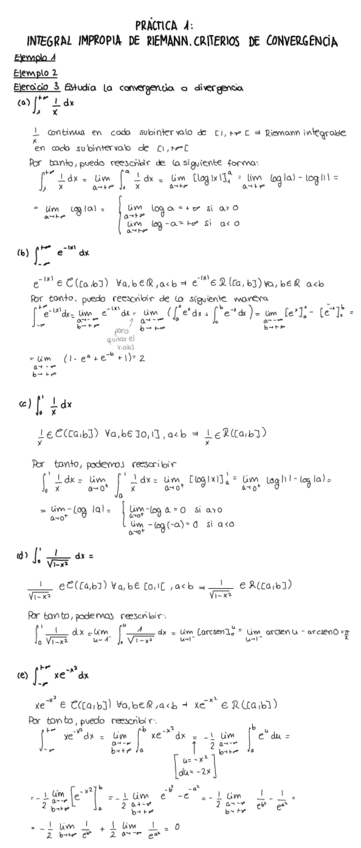 PRÁCTICA 1:
INTEGRAL IMPROPIA DE RIEMANN. CRITERIOS DE CONVERGENCIA
Ejemplo 1
Ejemplo 2
Ejercicio 3 Estudia la convergencia o divergencia
(a) ∫₁^{+∞} 1/x dx
1/x continua en cada subintervalo de [1,+∞[ ⇒ Riemann integrable
en cada subintervalo de [1,+∞[
Por tanto, puedo reescribir de la siguiente forma:
∫₁^{+∞} 1/x dx = lim_{a→+∞} ∫₁^a 1/x dx = lim_{a→+∞} [log|x|]₁^a = lim_{a→+∞} log|a| - log|1| =
= lim_{a→+∞} log|a| = { lim_{a→+∞} log a = +∞ si a>0
lim_{a→+∞} log -a = +∞ si a<0
(b) ∫_{-∞}^{+∞} e^{-|x|} dx
e^{-|x|} ∈ C([a,b]) ∀a,b∈ℝ, a<b ⇒ e^{-|x|} ∈ R([a,b]) ∀a,b∈ℝ a<b
Por tanto, puedo reescribir de la siguiente manera
∫_{-∞}^{+∞} e^{-|x|} dx = lim_{a→-∞, b→+∞} e^{-|x|} dx = lim_{a→-∞, b→+∞} (∫_a^0 e^x dx + ∫_0^b e^{-x} dx) = lim_{a→-∞, b→+∞} [e^x]_a^0 - [e^{-x}]_0^b =
para
quitar el
v.abs
= lim_{a→-∞, b→+∞} (1 - e^a + e^{-b} + 1) = 2
(c) ∫₀¹ 1/x dx
1/x ∈ C([a,b]) ∀a,b∈]0,1], a<b ⇒ 1/x ∈ R([a,b])
Por tanto, podemos reescribir
∫₀¹ 1/x dx = lim_{a→0⁺} ∫_a¹ 1/x dx = lim_{a→0⁺} [log|x|]_a¹ = lim_{a→0⁺} log|1| - log|a| =
= lim_{a→0⁺} -log|a| = { lim_{a→0⁺} -log a = 0 si a>0
lim_{a→0⁺} -log(-a) = 0 si a<0
(d) ∫₀¹ 1/√(1-x²) dx =
1/√(1-x²) ∈ C([a,b]) ∀a,b∈[0,1[, a<b ⇒ 1/√(1-x²) ∈ R([a,b])
Por tanto, podemos reescribir:
∫₀¹ 1/√(1-x²) dx = lim_{u→1⁻} ∫₀^u 1/√(1-x²) dx = lim_{u→1⁻} [arcsen]₀^u = lim_{u→1⁻} arcsen u - arcsen 0 = π/2
(e) ∫_{-∞}^{+∞} xe^{-x²} dx
xe^{-x²} ∈ C([a,b]) ∀a,b∈ℝ, a<b ⇒ xe^{-x²} ∈ R([a,b])
Por tanto, puedo reescribir:
∫_{-∞}^{+∞} xe^{-x²} dx = lim_{a→-∞, b→+∞} ∫_a^b xe^{-x²} dx = -1/2 lim_{a→-∞, b→+∞} ∫_a^b e^u du =
[u = -x²
du = -2x]
= -1/2 lim_{a→-∞, b→+∞} [e^{-x²}]_a^b = -1/2 lim_{a→-∞, b→+∞} e^{-b²} - e^{-a²} = -1/2 lim_{a→-∞, b→+∞} 1/e^{b²} - 1/e^{a²} =
= -1/2 lim_{b→+∞} 1/e^{b²} + 1/2 lim_{a→-∞} 1/e^{a²} = 0